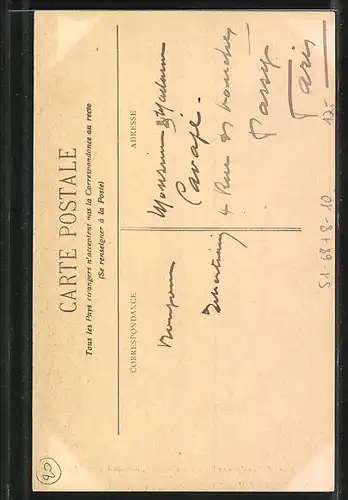 CARTE POSTALE
Tous les Pays étrangers n'acceptent pas la Correspondance au recto
(Se renseigner à la Poste)
CORRESPONDANCE
ADRESSE
Bonjour
Monsieur & Madame
4 Rue des
Passy
Paris
12.-
S1-68+8-10
20